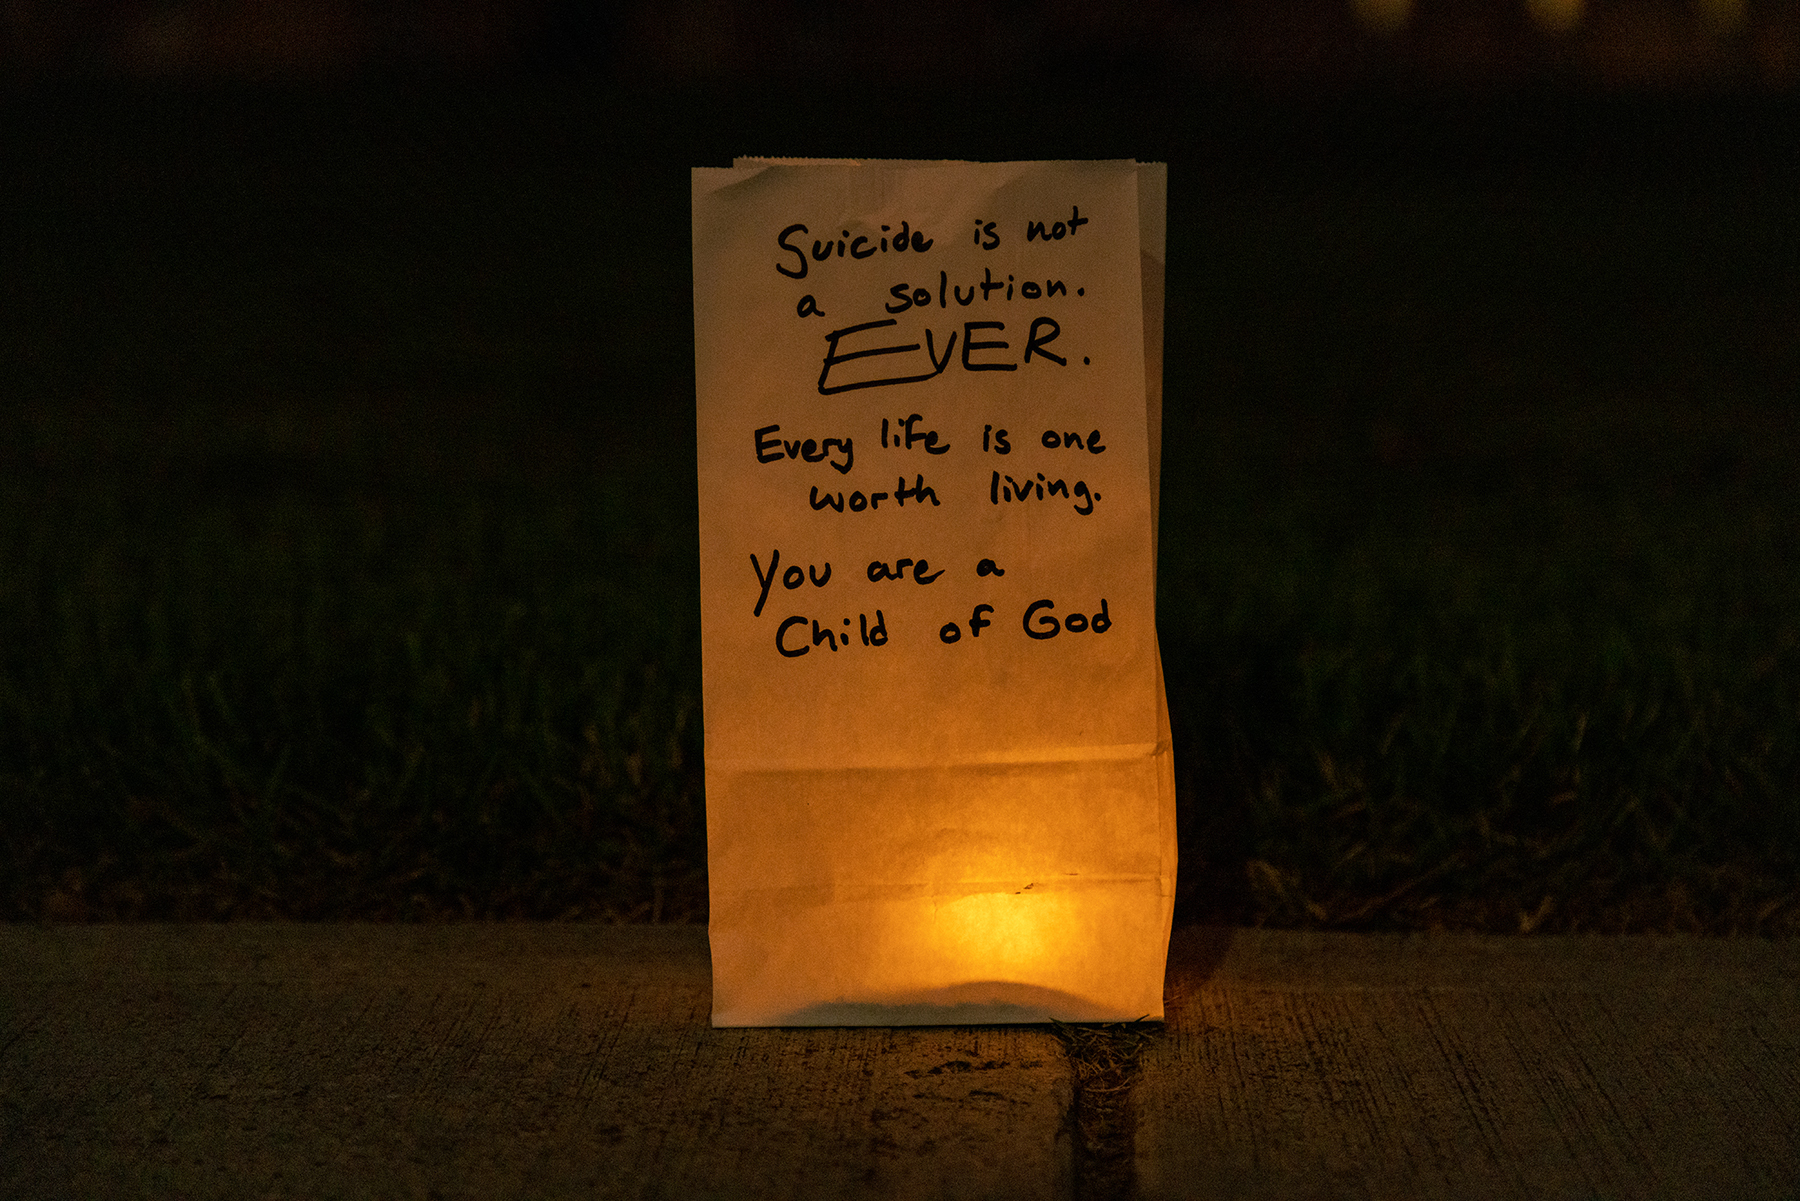 Suicide is not
a solution.
EVER.
Every life is one
worth living.
You are a
Child of God